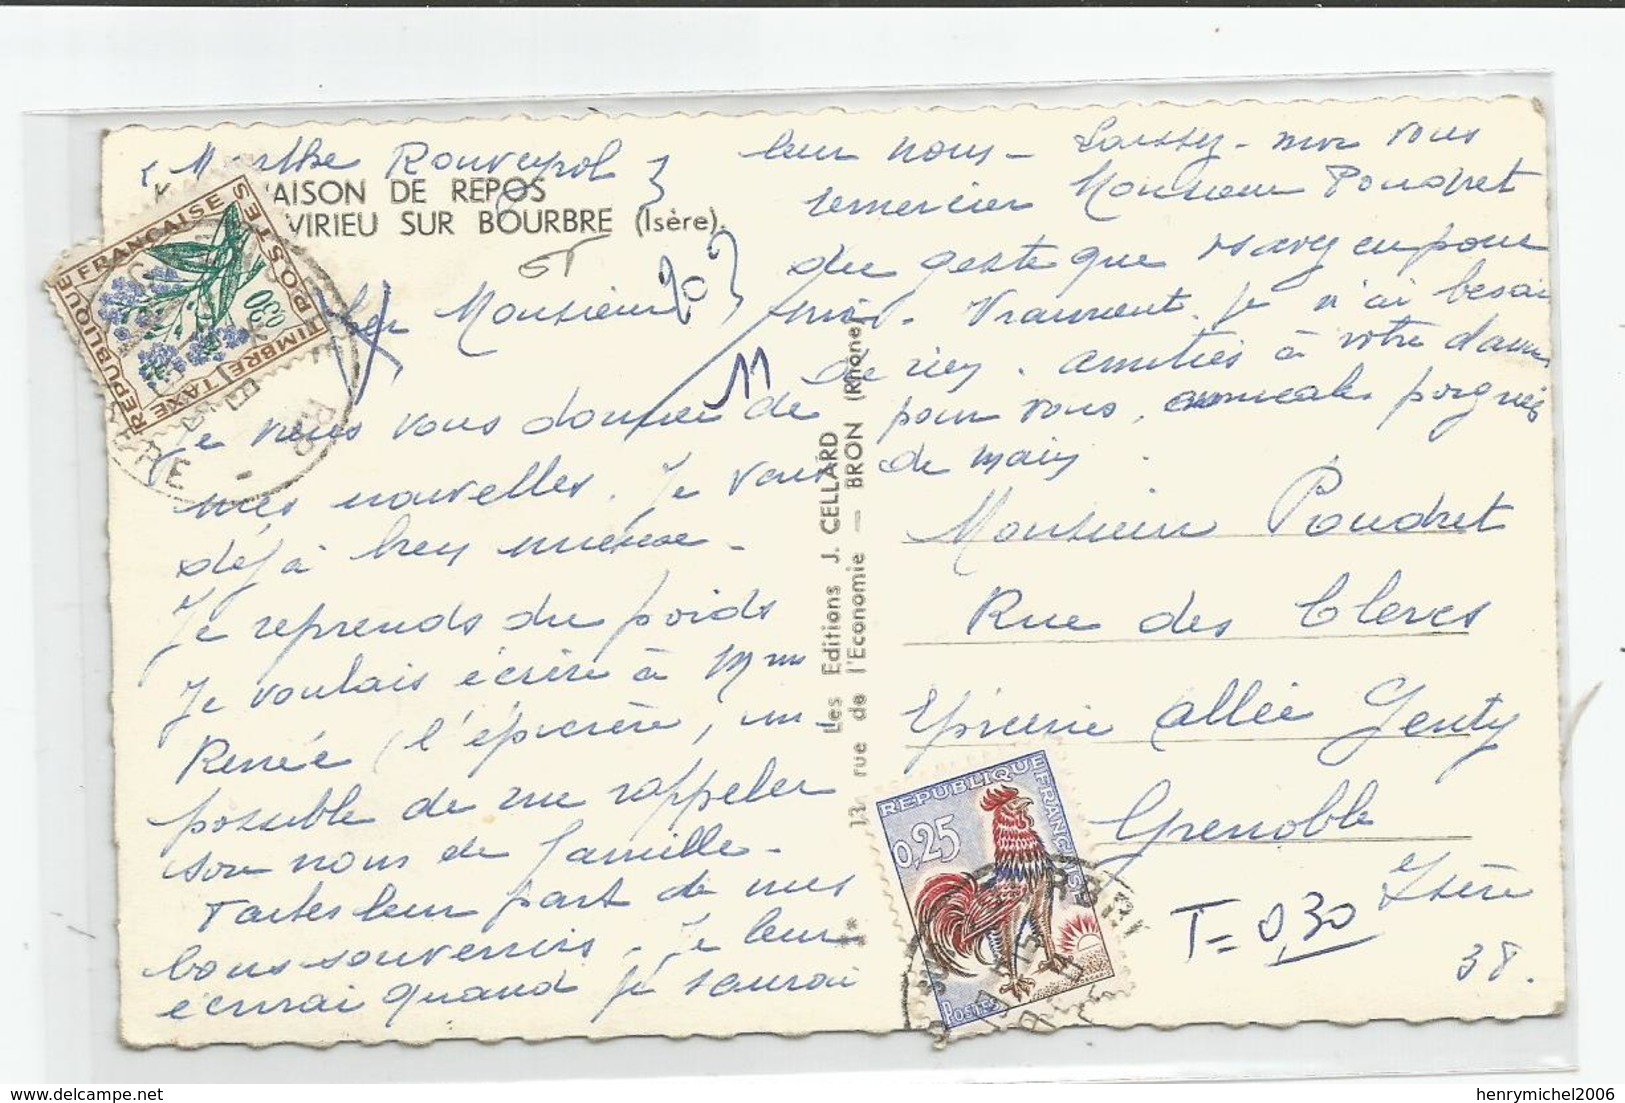 (Marthe Rouveyrol)
AISON DE REPOS
VIRIEU SUR BOURBRE (Isère).
Cher Monsieur
Je viens vous donner de
mes nouvelles. Je vais
déjà bien mieux -
Je reprends du poids
Je voulais écrire à Mme
Renée (l'épicière, im-
possible de me rappeler
son nom de famille -
Faites leur part de mes
bons souvenirs - Je leur
écrirai quand je saurai
leur nom - Laissez-moi vous
remercier Monsieur Poudret
du geste que vs avez eu pour
moi - Vraiment je n'ai besoin
de rien. Amitiés à votre dame
pour vous, amicales poignées
de main.
Monsieur Poudret
Rue des Clercs
Epicerie allée Genty
Grenoble
Isère
38.
T = 0,30
11
Les Editions J. CELLARD
13 rue de l'Economie — BRON (Rhône)
REPUBLIQUE FRANÇAISE
POSTES
TIMBRE TAXE
0,30
REPUBLIQUE FRANÇAISE
0,25
POSTES
henrymichel2006